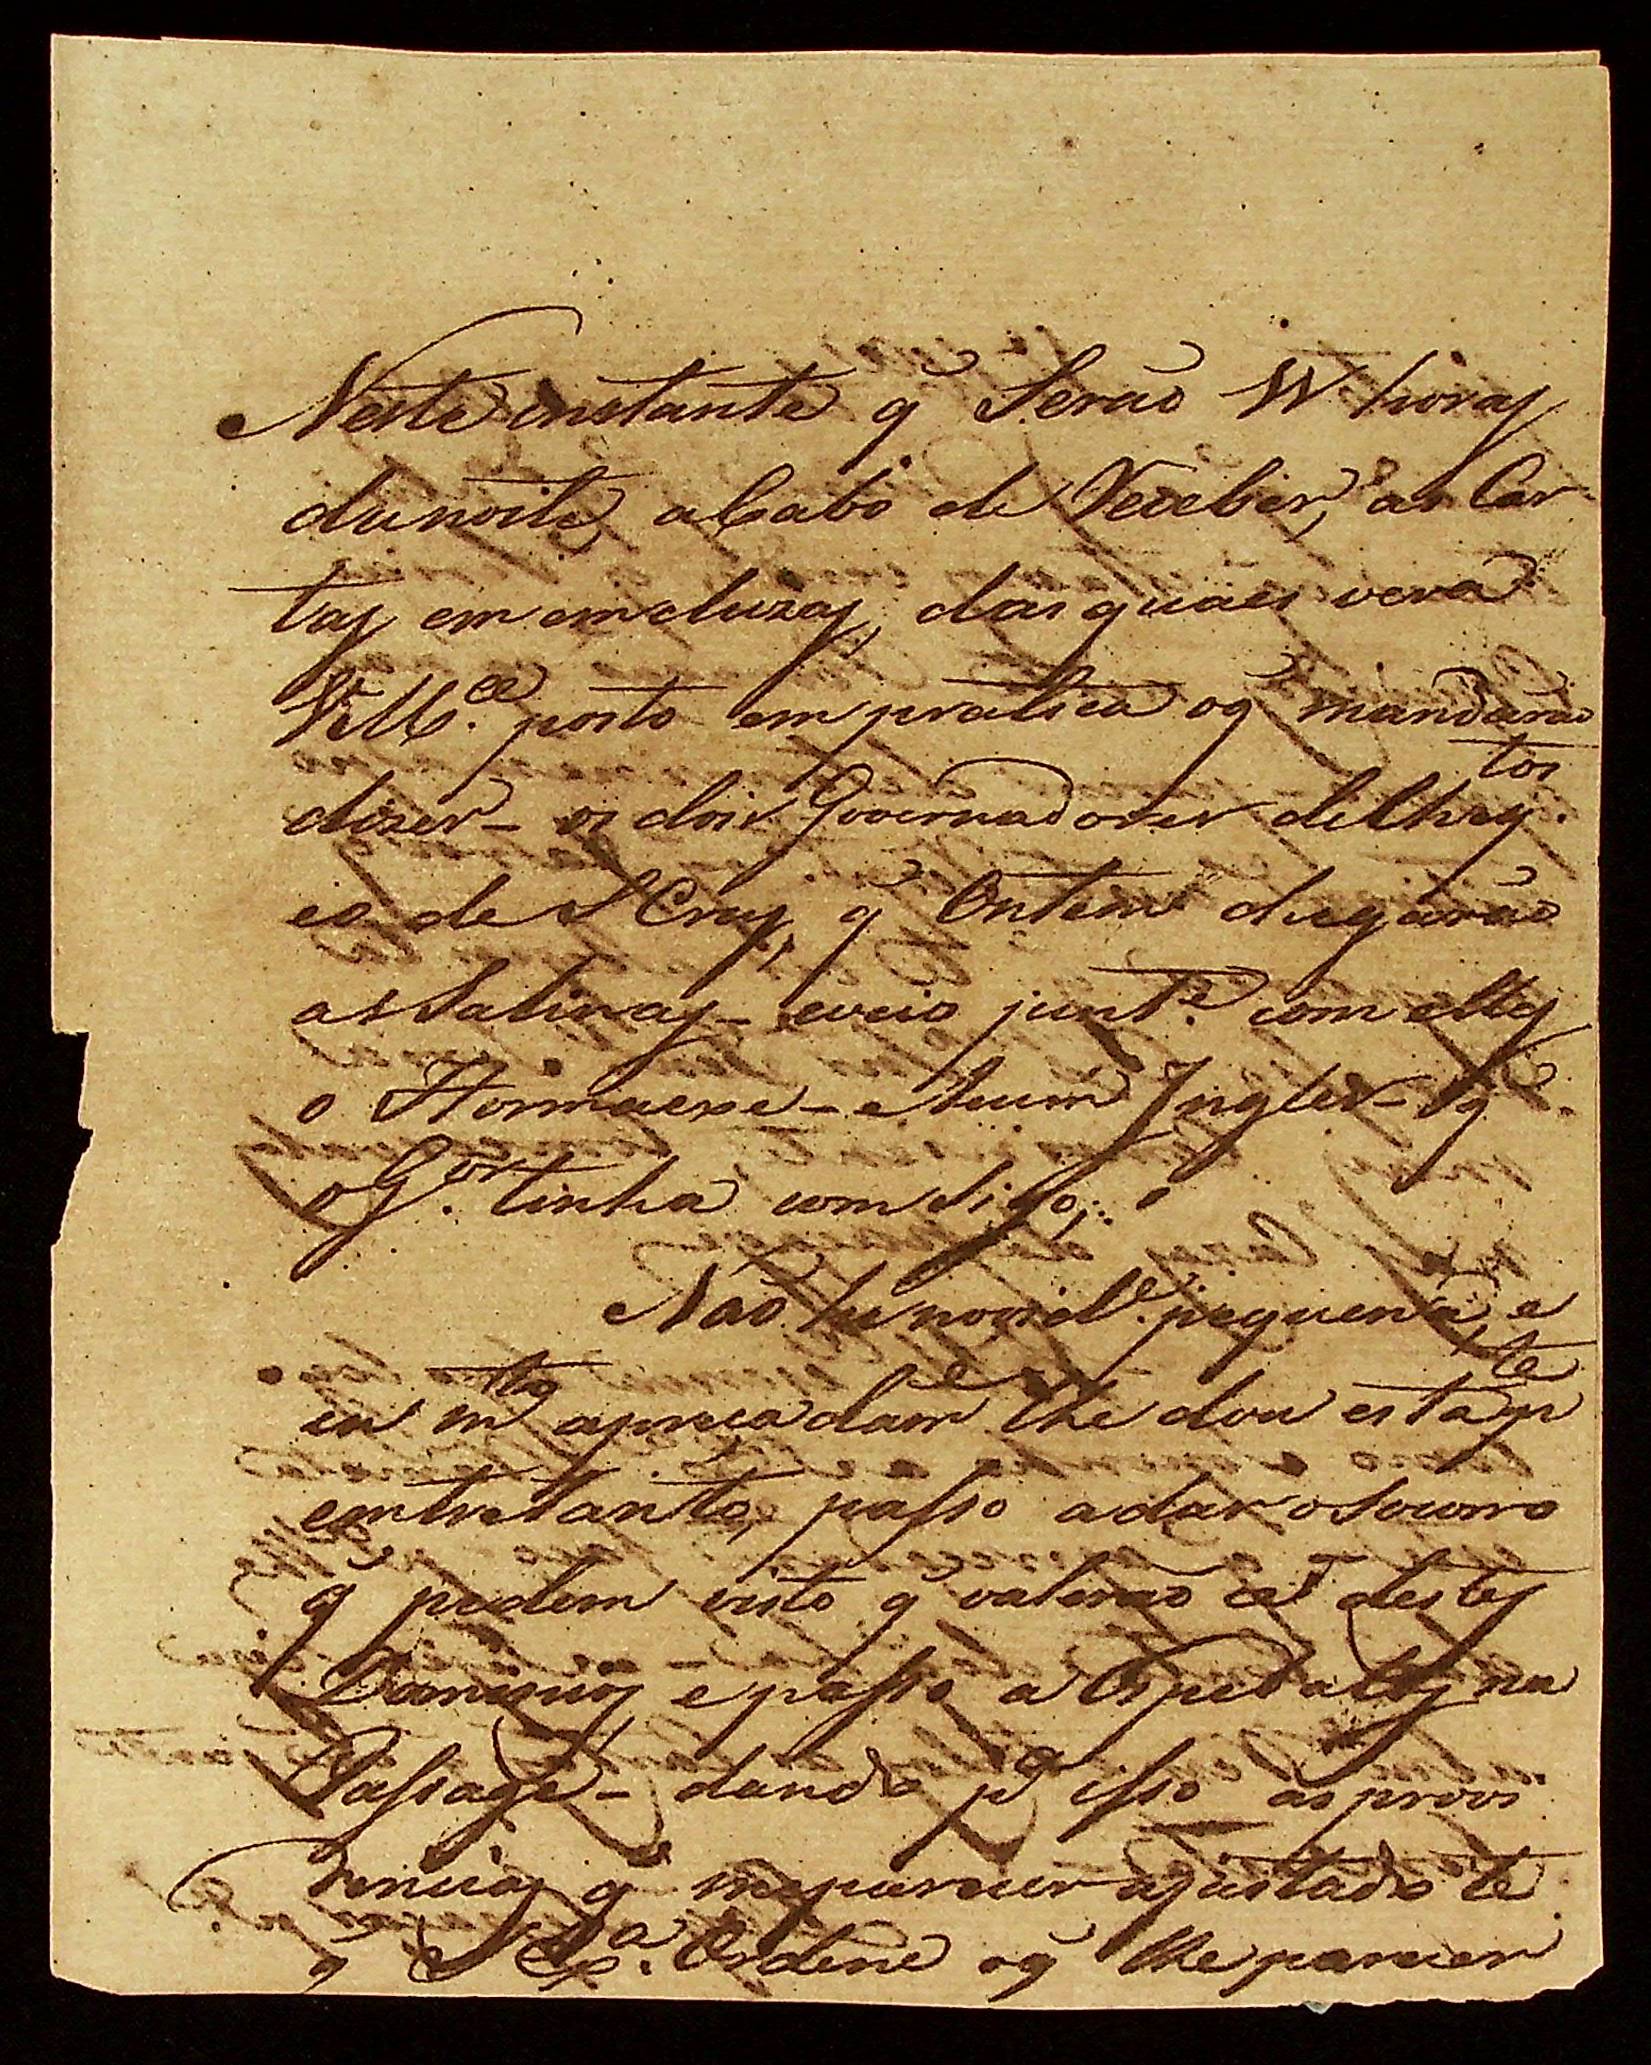 Neste instante q̃ Serão W horas
da noite acabo de Receber, as Car
tas em emcluzas, das quaes verá
VM.ce posto em pratica oq̃ mandarão
dizer – os dois Governadores de Chiq.tos
e o de S Cruz, q̃ Ontem chegárão
as Salinas – e veio junt.e com elles
o Hormaexe – e hum Ingles – q̃
o G.or tinha com sigo;
Não he novid.e pequena, e
eu m.to apreçadam.e lhe dou esta p.te
emtretanto, passo a dar o socorro
q̃ pedem visto q̃ valerão ce destes
Dominios e passo a Ospedalos na
Passage – dando p.a isso as provi
dencias q̃ me parecer ajustado té
q̃ S Ex.a Ordene oq̃ lhe parecer